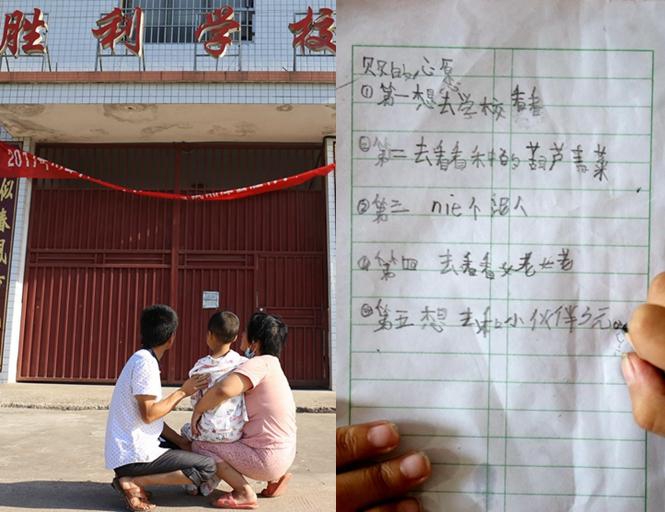 胜利学校
似春风
贝贝的心愿
①第一想去学校看看
②第二去看看种的葫芦青菜
③第三 nie个泥人
④第四 去看看姥姥
⑤第五 想去和小伙伴